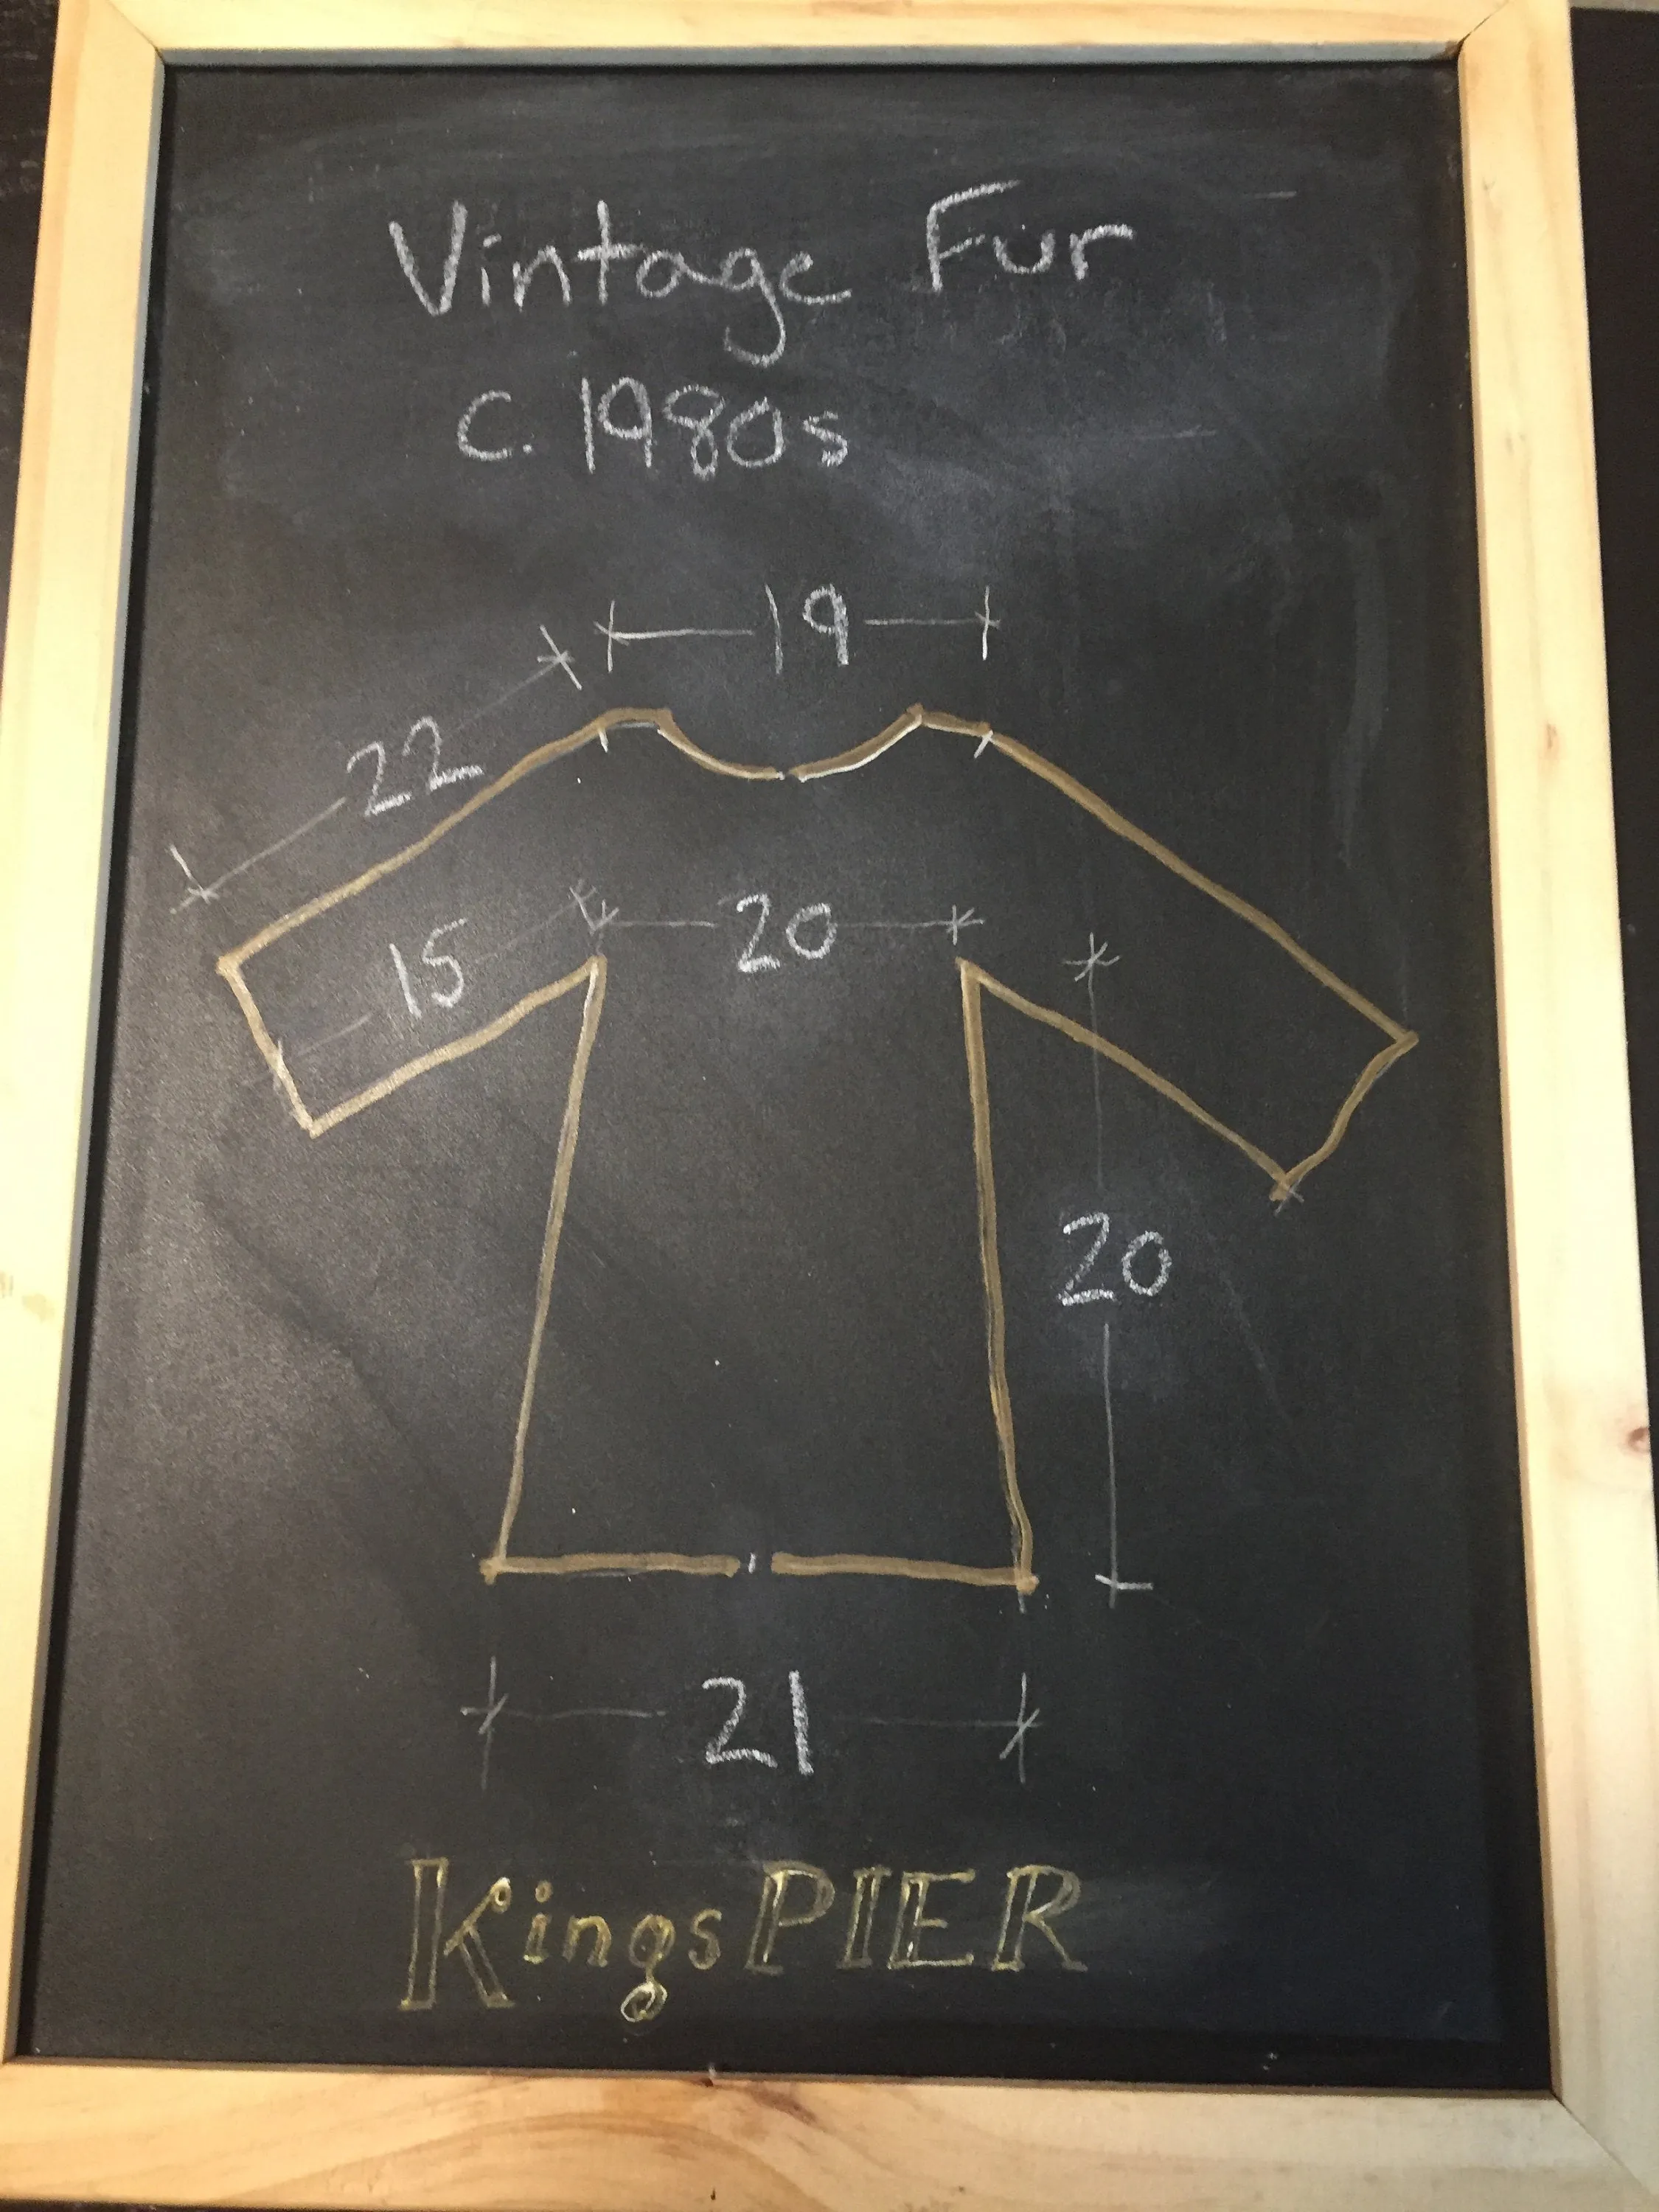 Vintage Fur
c. 1980s
19
22
15
20
20
21
KingsPIER